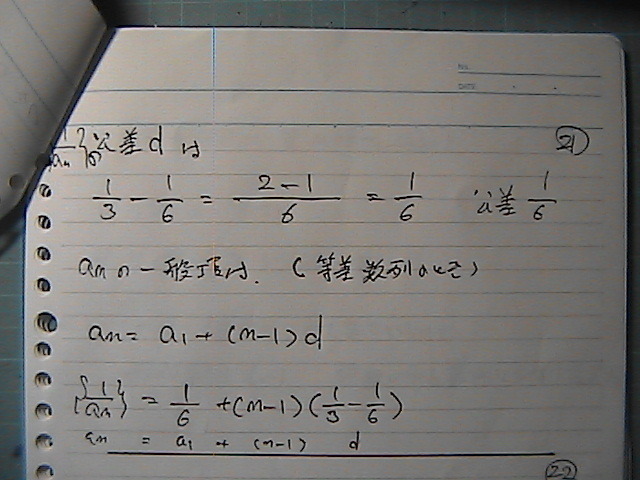 NO.
DATE
㉑
{1/an}の公差d は
1/3 - 1/6 = (2-1)/6 = 1/6 公差 1/6
an の一般項は、(等差数列のとき)
an = a1 + (n-1)d
{1/an} = 1/6 + (n-1)(1/3 - 1/6)
an = a1 + (n-1) d
㉒